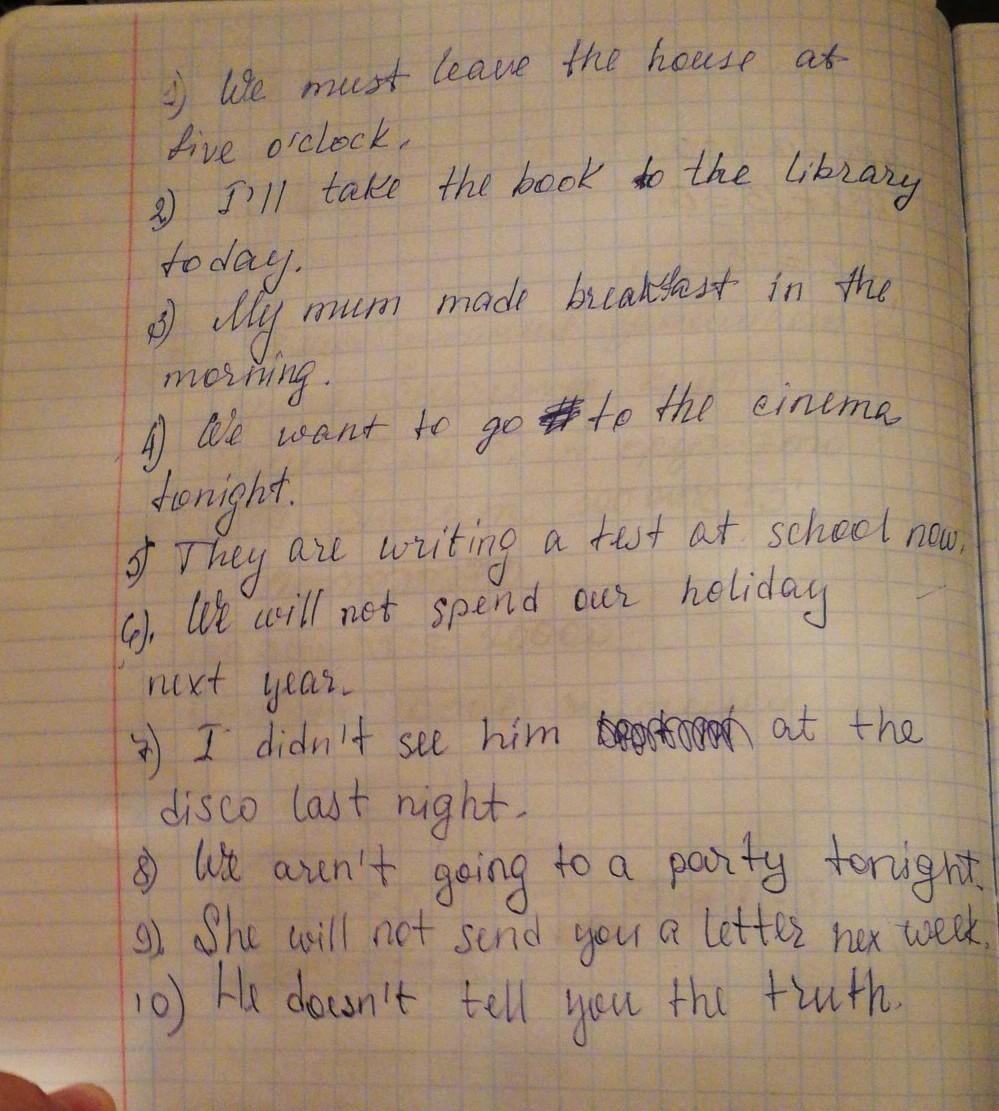 1) We must leave the house at
five o'clock.
2) I'll take the book to the library
today.
3) My mum made breakfast in the
morning.
4) We want to go to the cinema
tonight.
5) They are writing a test at school now.
6). We will not spend our holiday
next year.
7) I didn't see him at the
disco last night.
8) We aren't going to a party tonight.
9). She will not send you a letter nex week.
10) He doesn't tell you the truth.